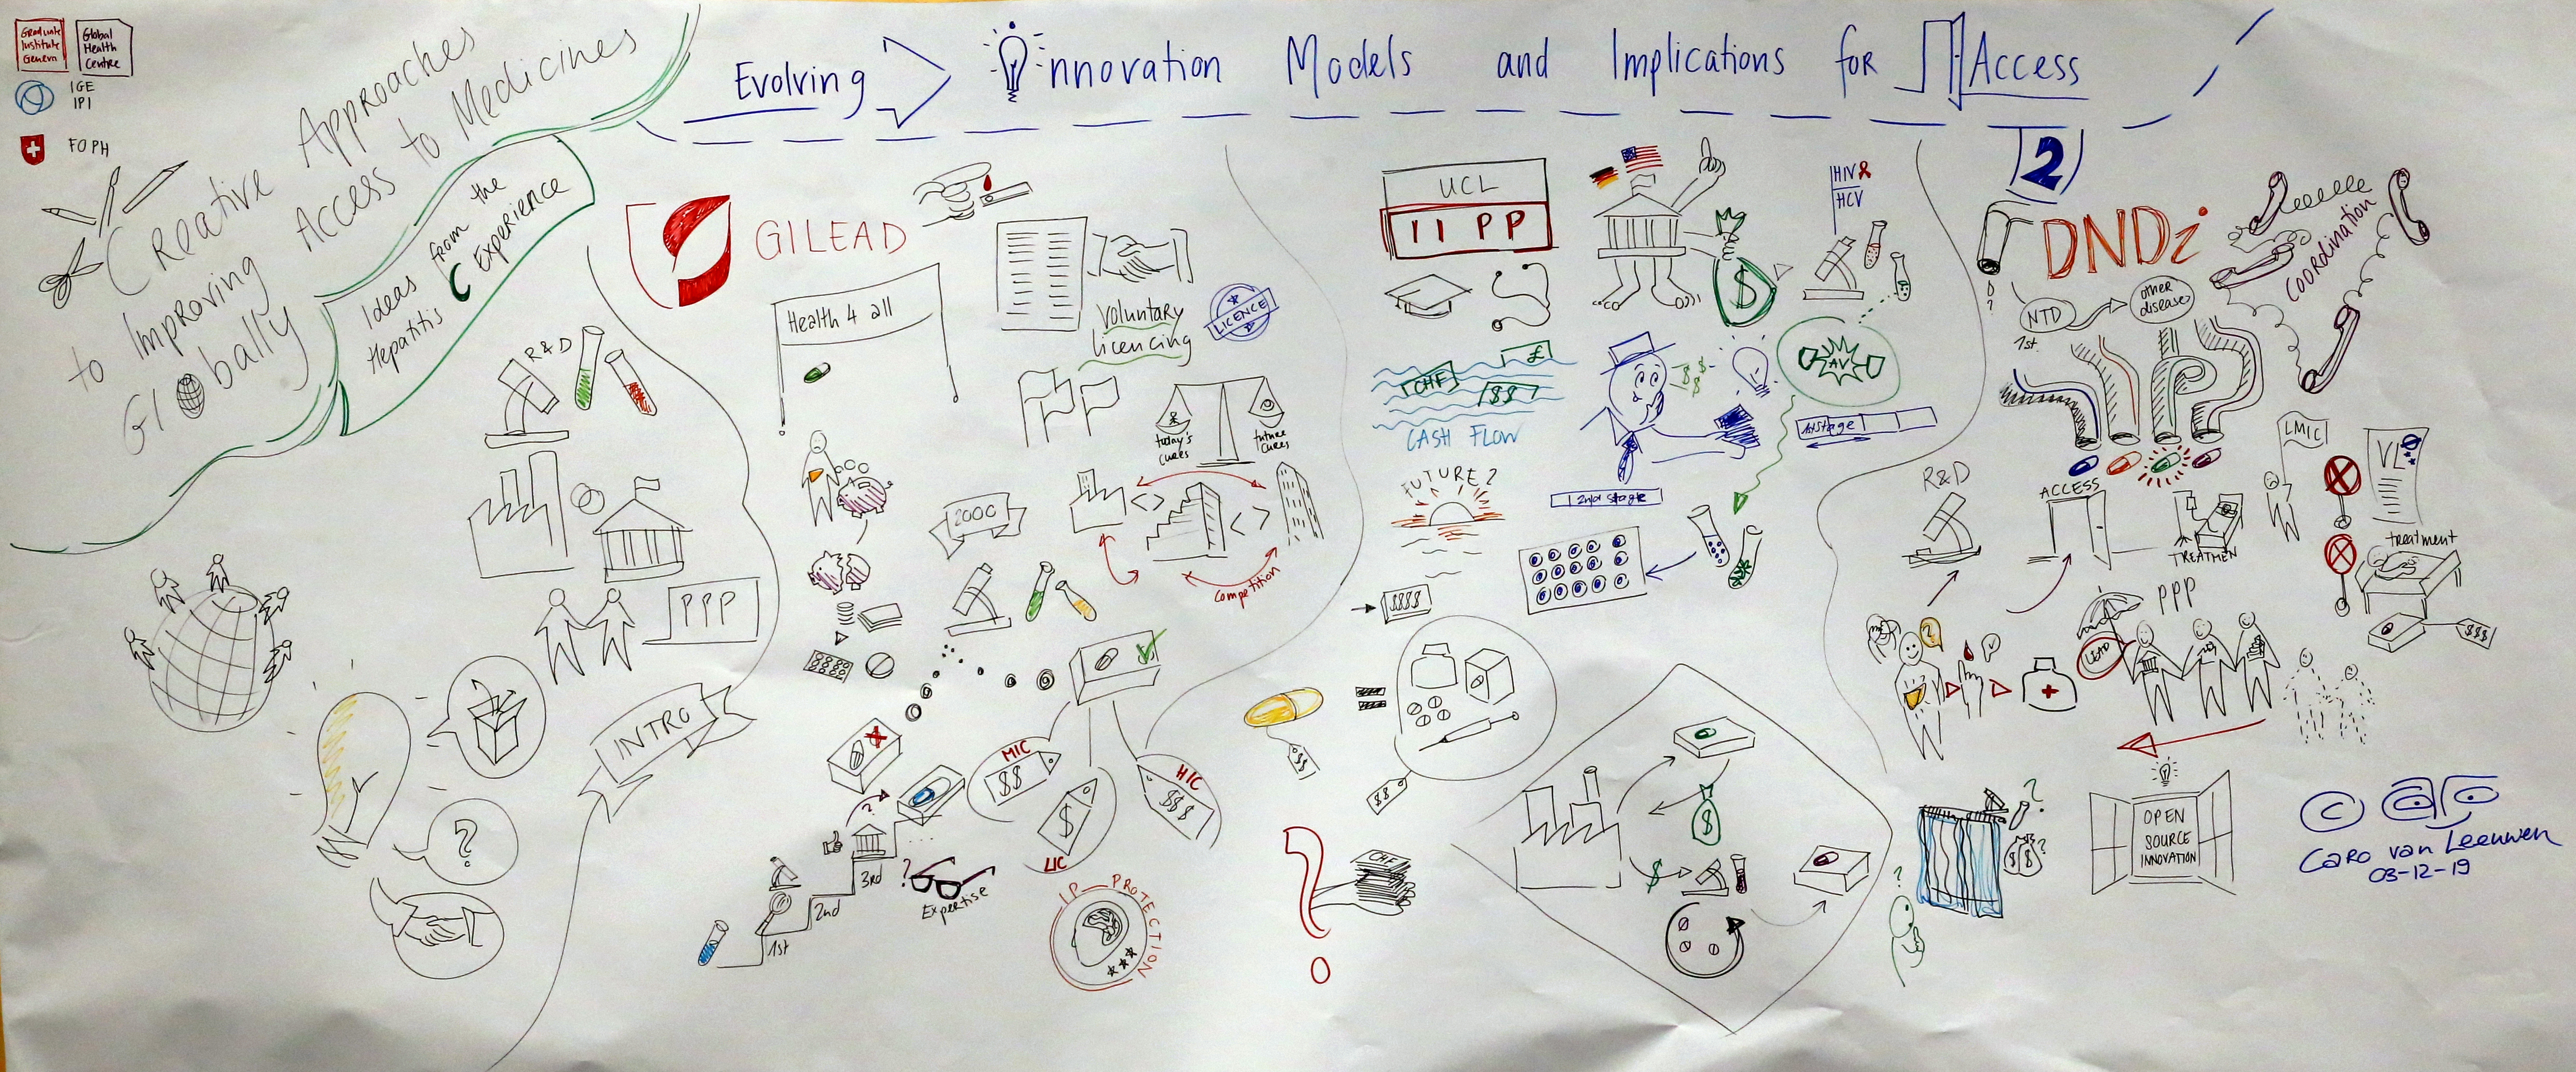 Graduate
Institute
Geneva
Global
Health
Centre
IGE
IPI
FOPH
Creative Approaches
to Improving Access to Medicines
Globally
Ideas from the
Hepatitis C Experience
Evolving Innovation Models and Implications for Access
2
R&D
PPP
INTRO
?
GILEAD
Health 4 all
Voluntary
licencing
LICENCE
today's
cures
future
cures
Competition
MIC
$$
LIC
$
HIC
$$$
?
1st
2nd
3rd
?
Expertise
IP PROTECTION
UCL
IIPP
$
HIV
HCV
CHF
£
$$
CASH FLOW
$ $
$ $
AV
1st stage
2nd stage
FUTURE?
$$$$
$$
$$
CHF
$
$
DNDi
?
NTD
1st
other
diseases
Coordination
LMIC
VL
R&D
ACCESS
TREATMEN
treatment
$$$
PPP
LEAD
?
?
?
$ $
?
OPEN
SOURCE
INNOVATION
© caro
Caro van Leeuwen
03-12-19